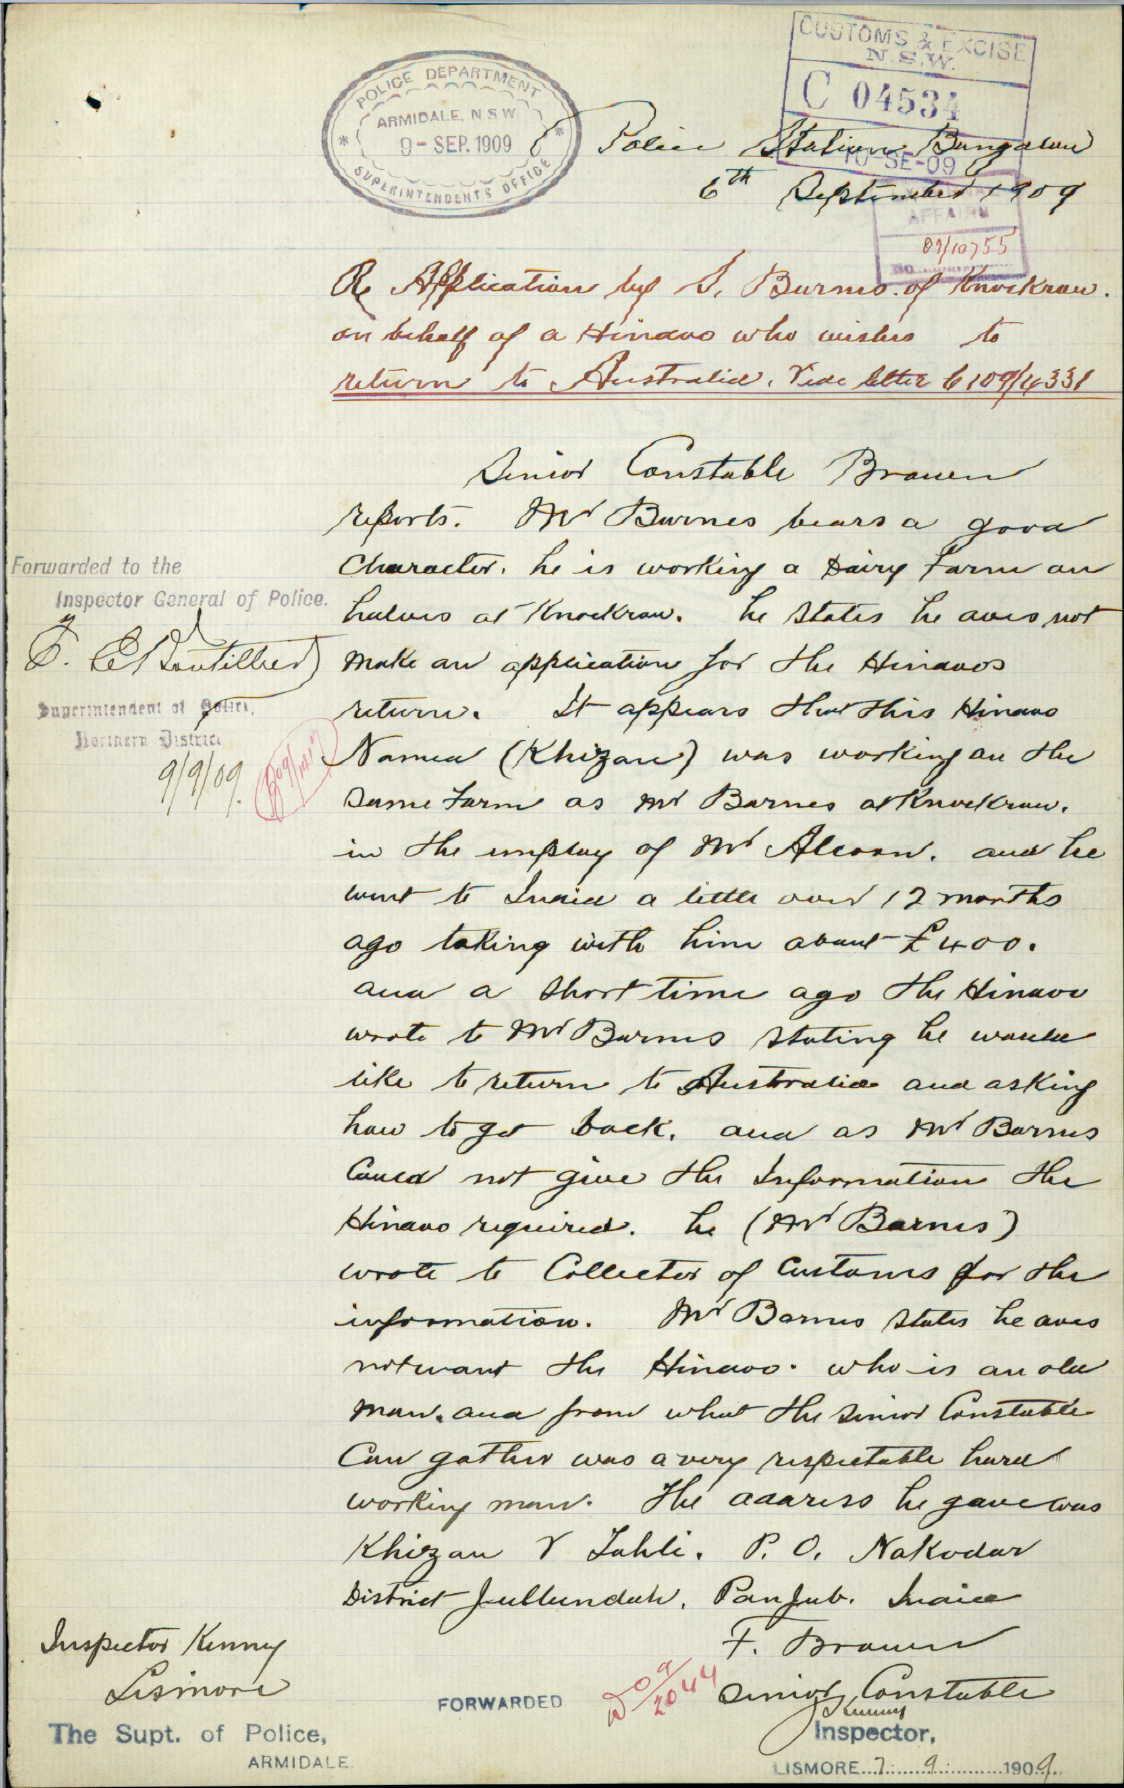 CUSTOMS & EXCISE
N.S.W.
C 04534
10-SE-09
POLICE DEPARTMENT
ARMIDALE, N.S.W.
9 - SEP. 1909
SUPERINTENDENT'S OFFICE
Police Station Bangalow
6th September 1909
AFFAIRS
09/10755
Re Application by S. Burnes. of Knockrow.
on behalf of a Hindoo who wishes to
return to Australia. Vide letter C 109/4331
Senior Constable Brown
reports. Mr Burnes bears a good
Character. he is working a Dairy Farm on
halves at Knockrow. he states he does not
make an application for the Hindoos
return. It appears that this Hindoo
Named (Khizan) was working on the
same Farm as Mr Barnes at Knockrow.
in the employ of Mr Alcorn. and he
went to India a little over 12 months
ago taking with him about £400.
and a short time ago the Hindoo
wrote to Mr Barnes stating he would
like to return to Australia and asking
how to get back. and as Mr Barnes
Could not give the Information the
Hindoo required. he (Mr Barnes)
wrote to Collector of Customs for the
information. Mr Barnes states he does
not want the Hindoo. who is an old
man. and from what the Senior Constable
Can gather was a very respectable hard
working man. The address he gave was
Khizan V Tahli. P. O. Nakodar
District Jullundah, Panjub. India
F. Brown
Senior Constable
Forwarded to the
Inspector General of Police.
Superintendent of Police,
Northern District
9/9/09.
Inspector Kenny
Lismore
The Supt. of Police,
ARMIDALE
FORWARDED
09/2044
Kenny
Inspector,
LISMORE 7 . 9 . 1909.